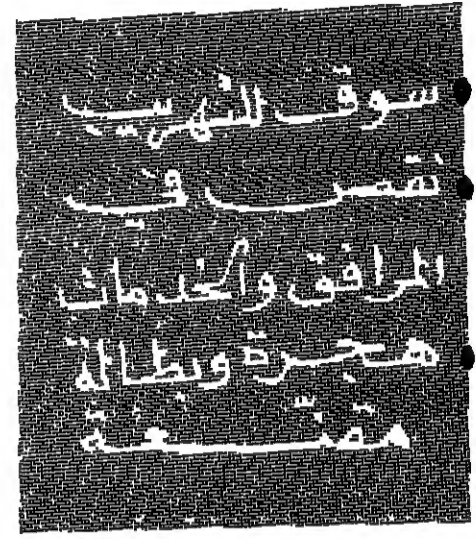 سوق للتهريب
نقص في
المرافق والخدمات
هجرة وبطالة
مقنّعة